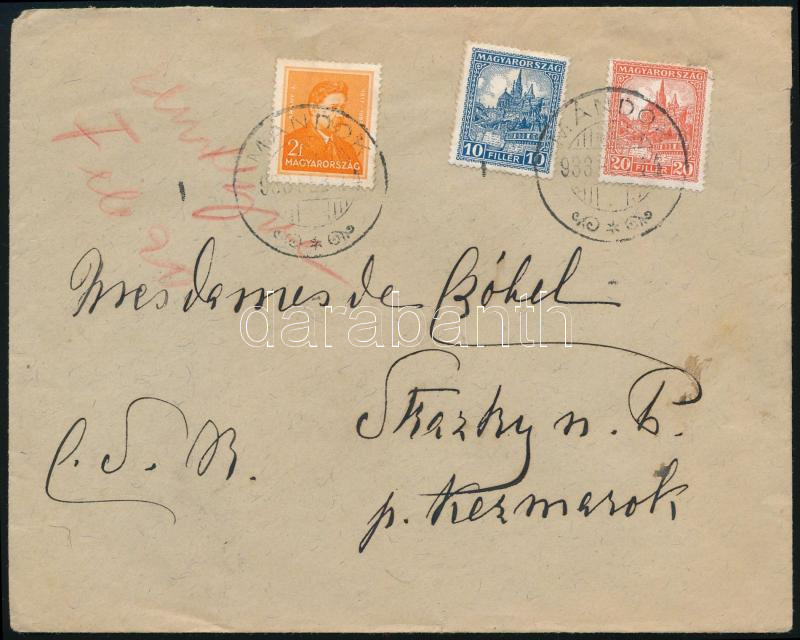 2f
MAGYARORSZÁG
MAGYARORSZÁG
10 FILLÉR 10
MAGYARORSZÁG
20 FILLÉR 20
MÁNDOK
933
MÁNDOK
933
Mesdames de Bóhel
Strazky n. P.
C. S. R.
p. Kezmarok
darabanth